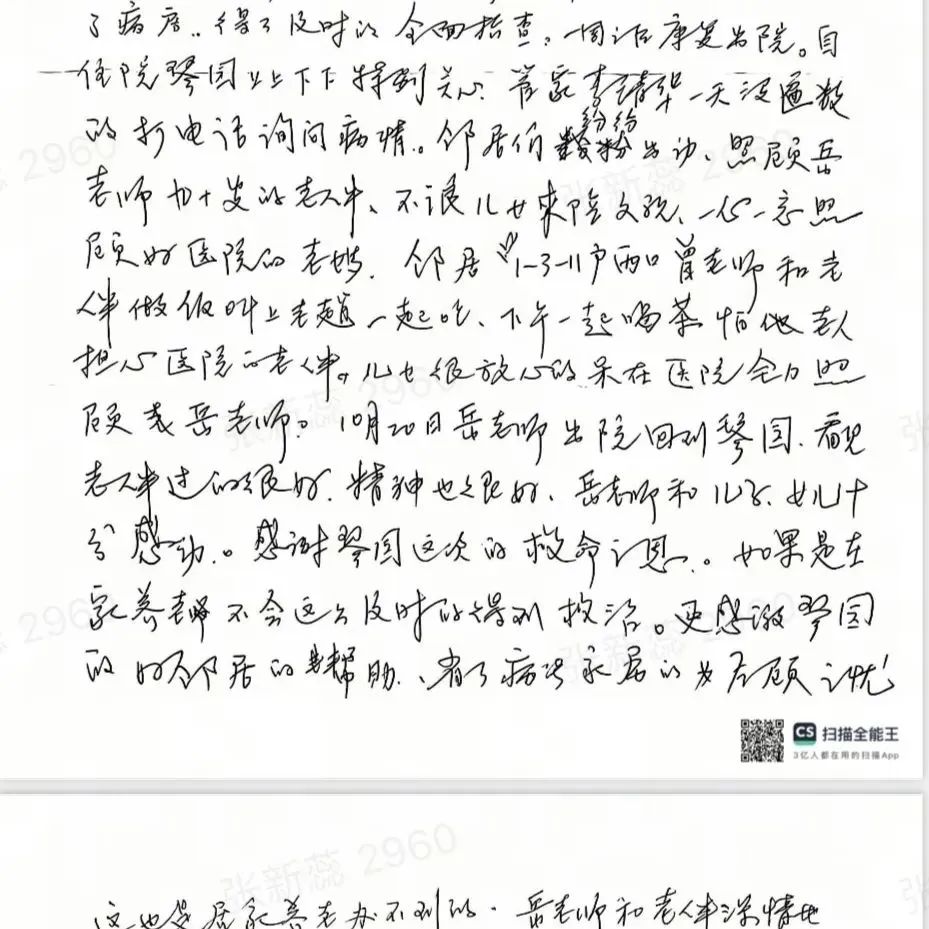 了病房..得了及时的全面检查,一周后康复出院。自
住院琴园上上下下特别关心.管家李清华一天没遍数
的打电话询问病情。邻居们纷纷出动、照顾岳
老师九十岁的老伴、不误儿女来陪文苑、一心一意照
顾好医院的老妈.邻居"1-3-11户两口曾老师和老
伴做饭叫上老赵一起吃、下午一起喝茶怕他老人
担心医院的老伴。儿女很放心的呆在医院全力照
顾着岳老师。10月20日岳老师出院回到琴园.看见
老伴过的很好.精神也很好.岳老师和儿子.女儿十
分感动。感谢琴园这次的救命之恩。如果是在
家养老不会这么及时的得到救治。更感激琴园
的好邻居的帮助.有了病.家属的后顾之忧
CS 扫描全能王
3亿人都在用的扫描App
这也是居家养老办不到的.岳老师和老伴深情地
张新蕊 2960